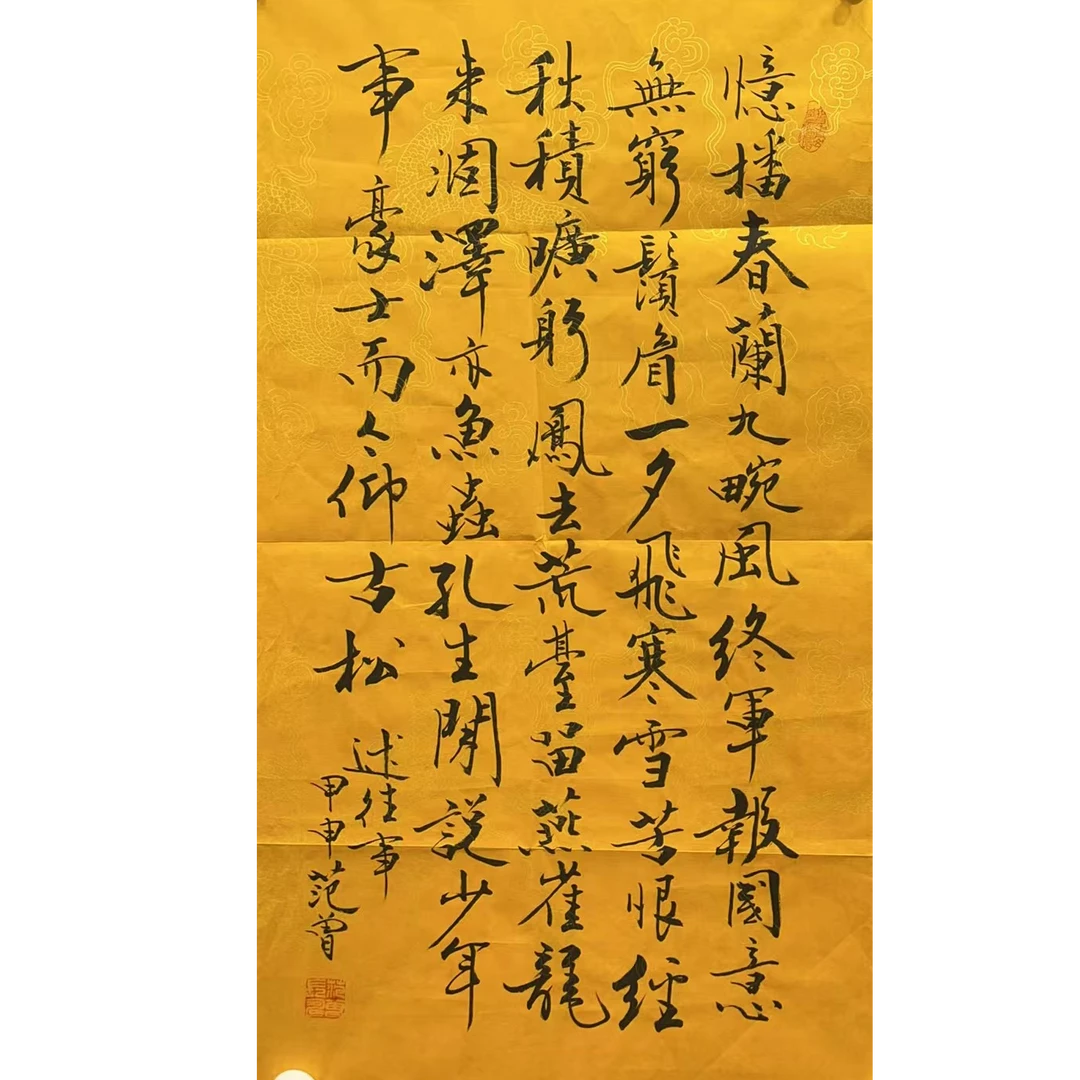 憶播春蘭九畹風終軍報國意
無窮鬚眉一夕飛寒雪苦恨經
秋積曠躬鳳去荒臺留燕雀龍
來涸澤亦魚蟲孔生閒說少年
事豪士而今仰古松
述往事
甲申范曾